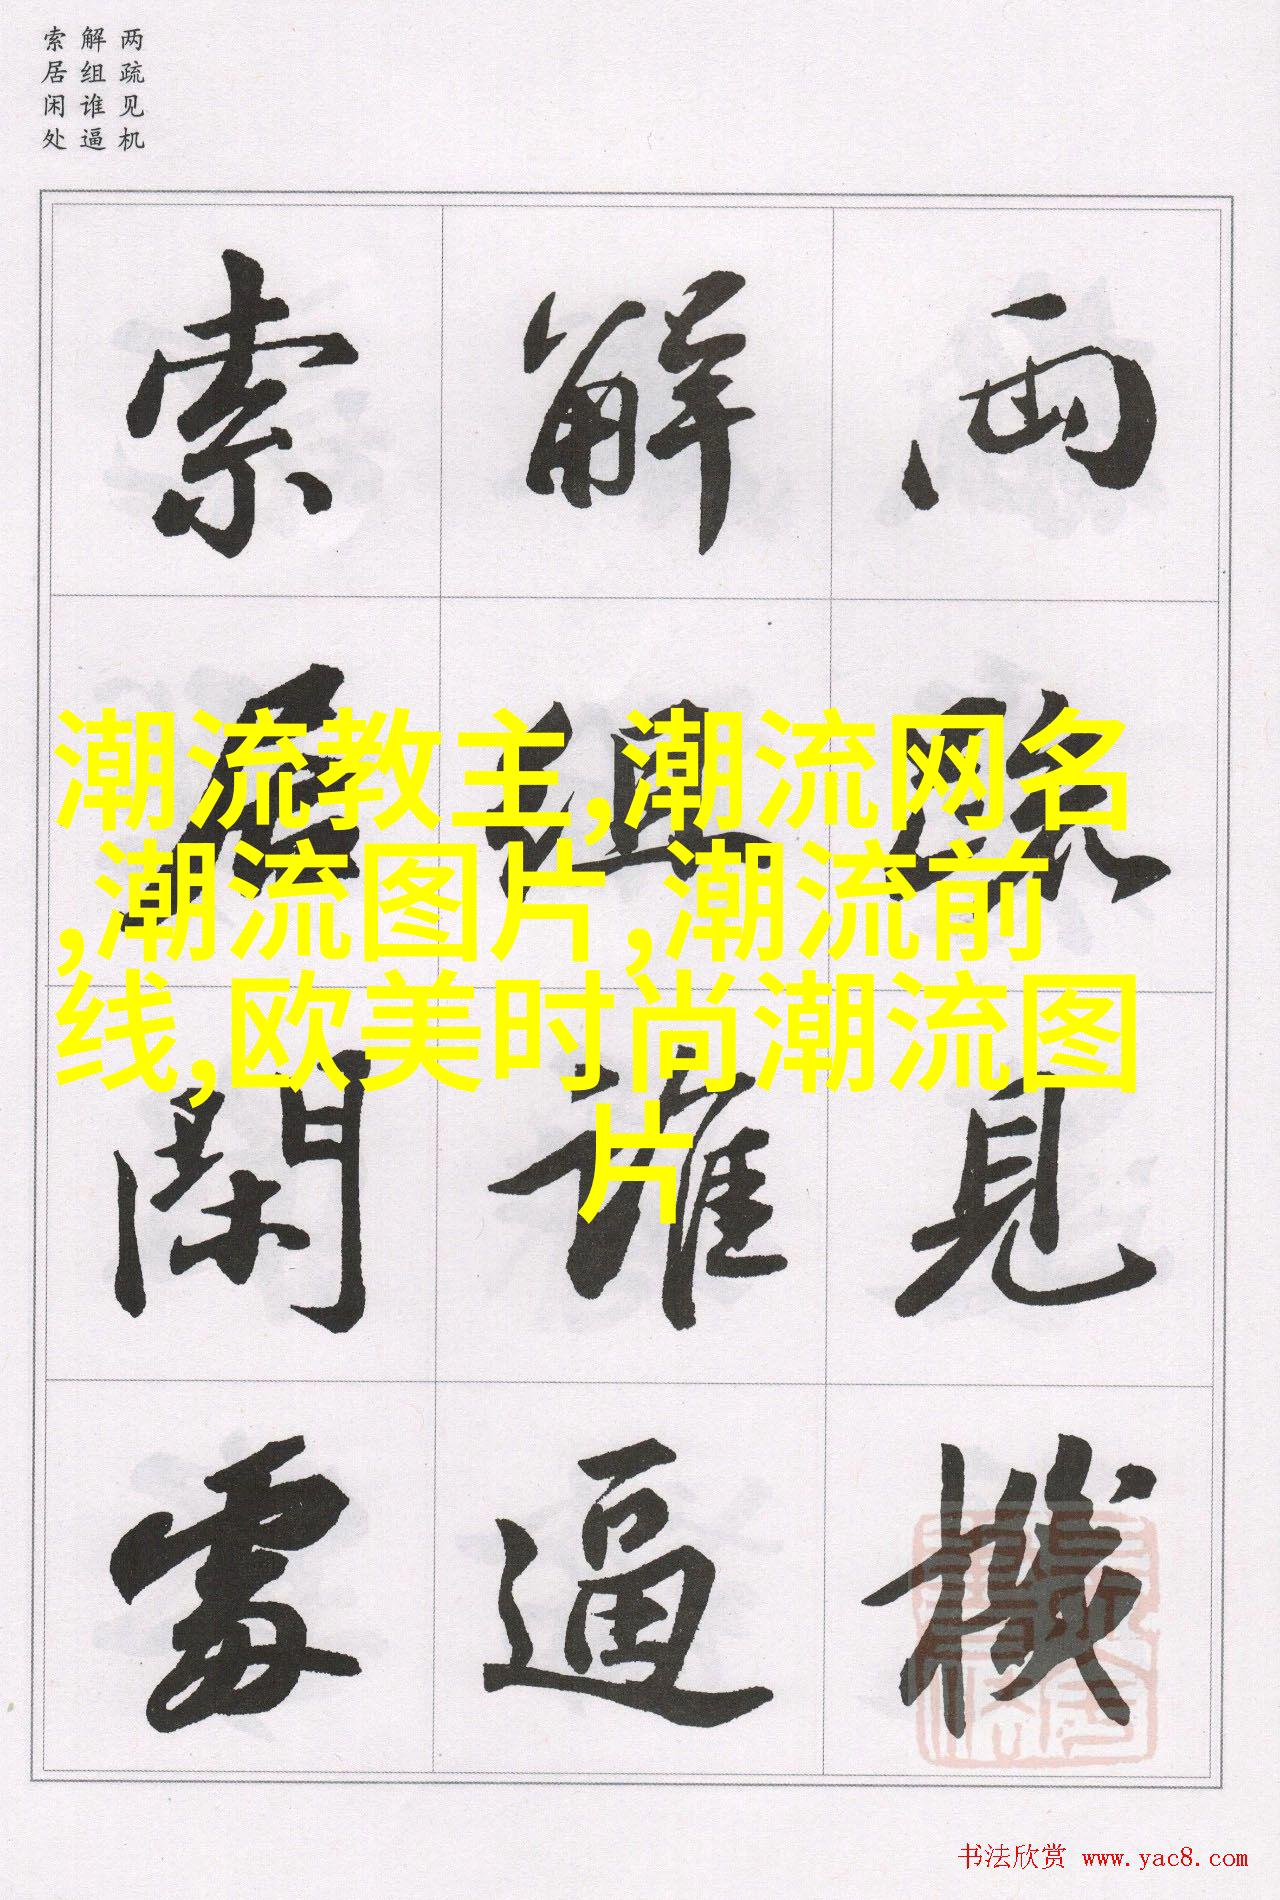 两疏见机
解组谁逼
索居闲处
兩疏見機
解組誰逼
索居閑處
潮流教主,潮流网名
,潮流图片,潮流前
线,欧美时尚潮流图
片
书法欣赏 www.yac8.com